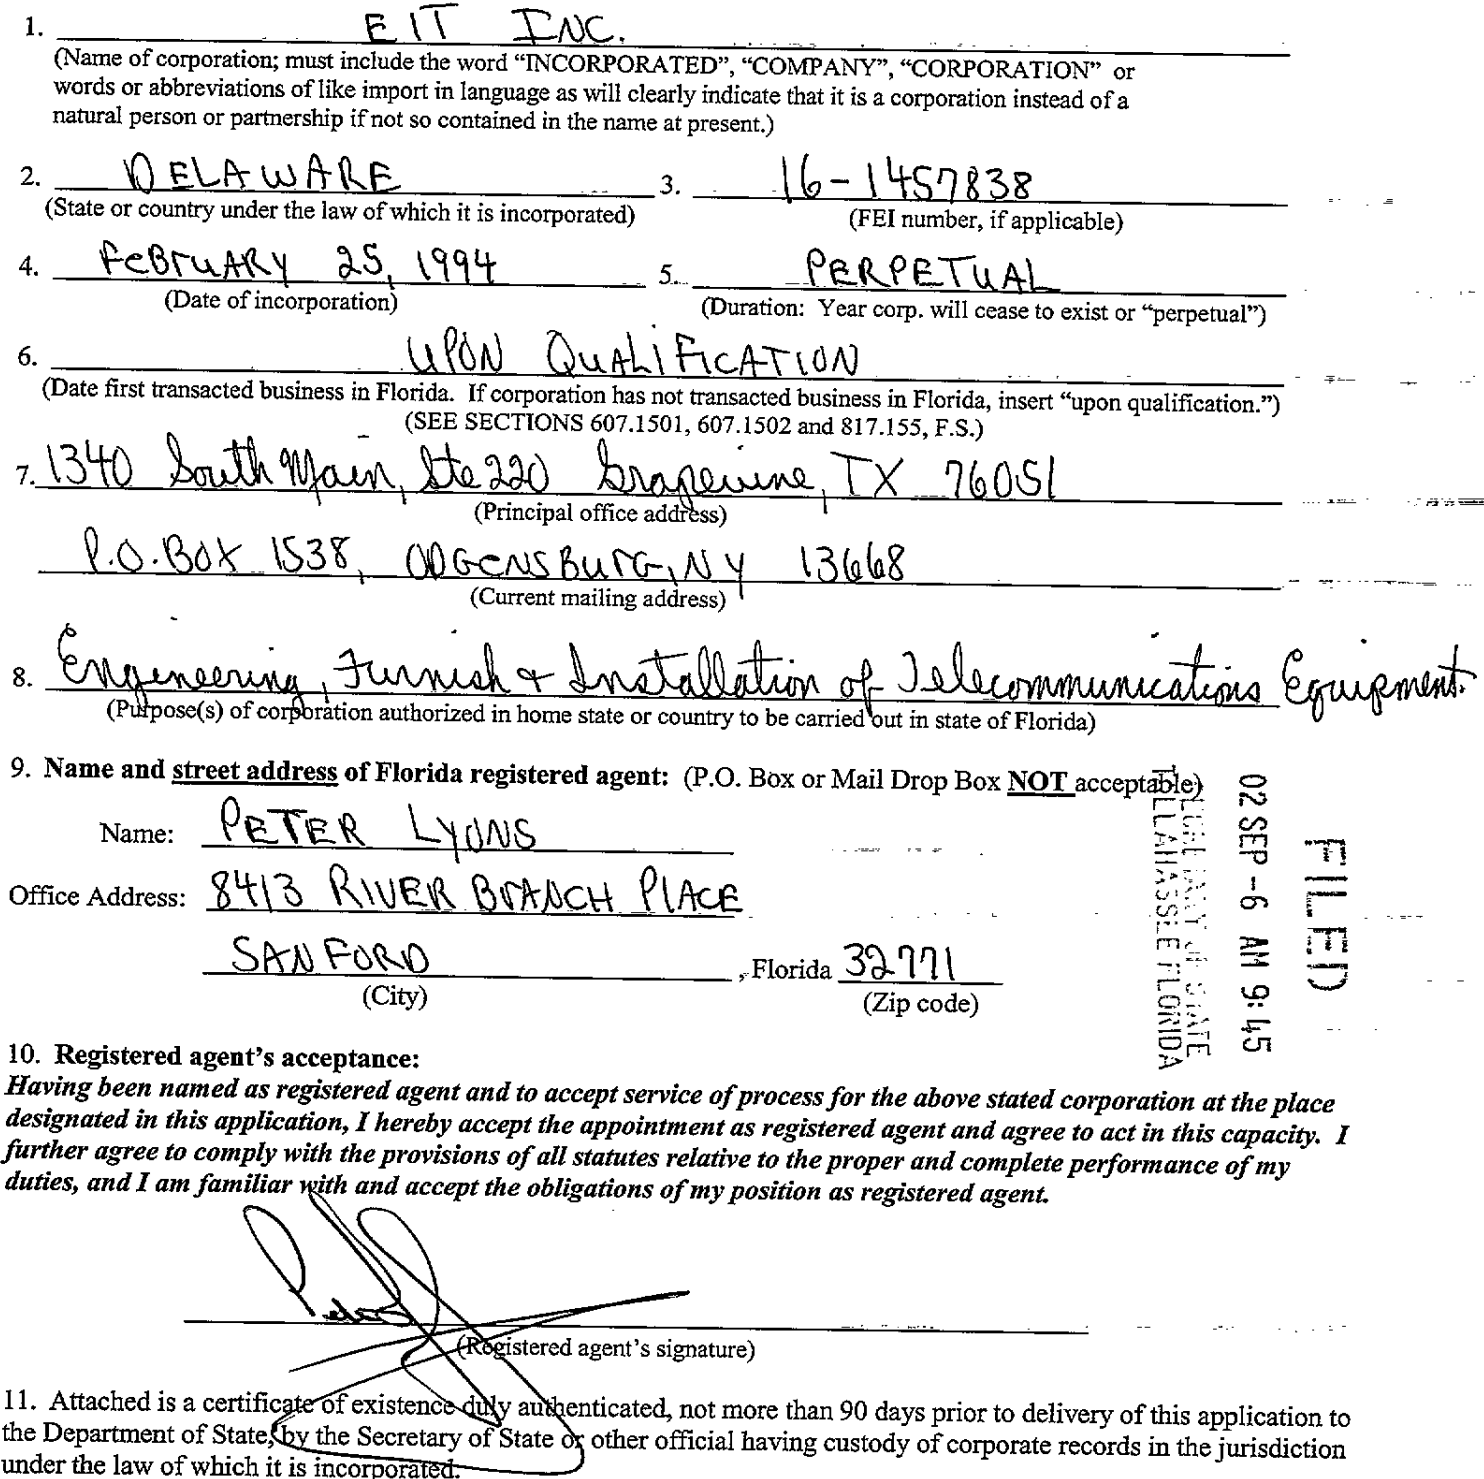 1. EIT INC.
(Name of corporation; must include the word “INCORPORATED”, “COMPANY”, “CORPORATION” or
words or abbreviations of like import in language as will clearly indicate that it is a corporation instead of a
natural person or partnership if not so contained in the name at present.)
2. DELAWARE 3. 16-1457838
(State or country under the law of which it is incorporated) (FEI number, if applicable)
4. FeBruARY 25, 1994 5. PERPETUAL
(Date of incorporation) (Duration: Year corp. will cease to exist or “perpetual”)
6. UPON QuALiFICATION
(Date first transacted business in Florida. If corporation has not transacted business in Florida, insert “upon qualification.”)
(SEE SECTIONS 607.1501, 607.1502 and 817.155, F.S.)
7. 1340 South Main, Ste 220 Grapevine, TX 76051
(Principal office address)
P.O. BOX 1538, ODGENSBURG, NY 13668
(Current mailing address)
8. Engineering, Furnish & Installation of Telecommunications Equipment.
(Purpose(s) of corporation authorized in home state or country to be carried out in state of Florida)
9. Name and street address of Florida registered agent: (P.O. Box or Mail Drop Box NOT acceptable)
Name: PETER LYONS
Office Address: 8413 RIVER BRANCH PLACE
SANFORD, Florida 32771
(City) (Zip code)
FILED
02 SEP -6 AM 9:45
OF STATE
FLORIDA
10. Registered agent’s acceptance:
Having been named as registered agent and to accept service of process for the above stated corporation at the place
designated in this application, I hereby accept the appointment as registered agent and agree to act in this capacity. I
further agree to comply with the provisions of all statutes relative to the proper and complete performance of my
duties, and I am familiar with and accept the obligations of my position as registered agent.
(Registered agent’s signature)
11. Attached is a certificate of existence duly authenticated, not more than 90 days prior to delivery of this application to
the Department of State, by the Secretary of State or other official having custody of corporate records in the jurisdiction
under the law of which it is incorporated.